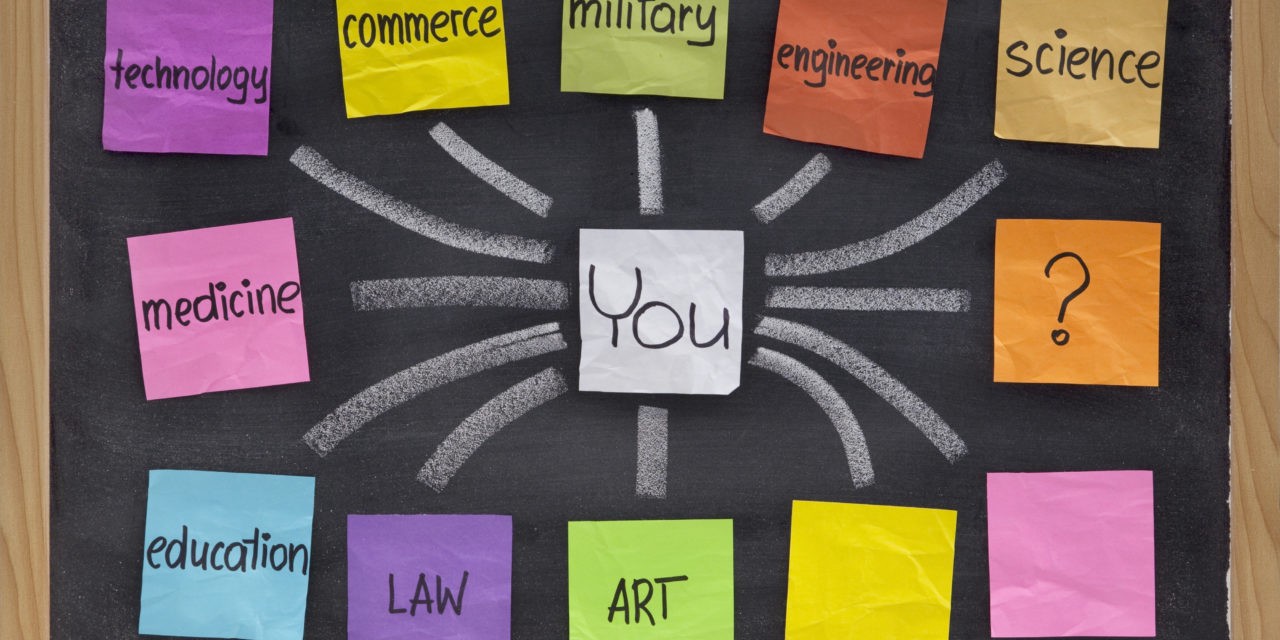 technology
commerce
military
engineering
science
medicine
You
?
education
LAW
ART